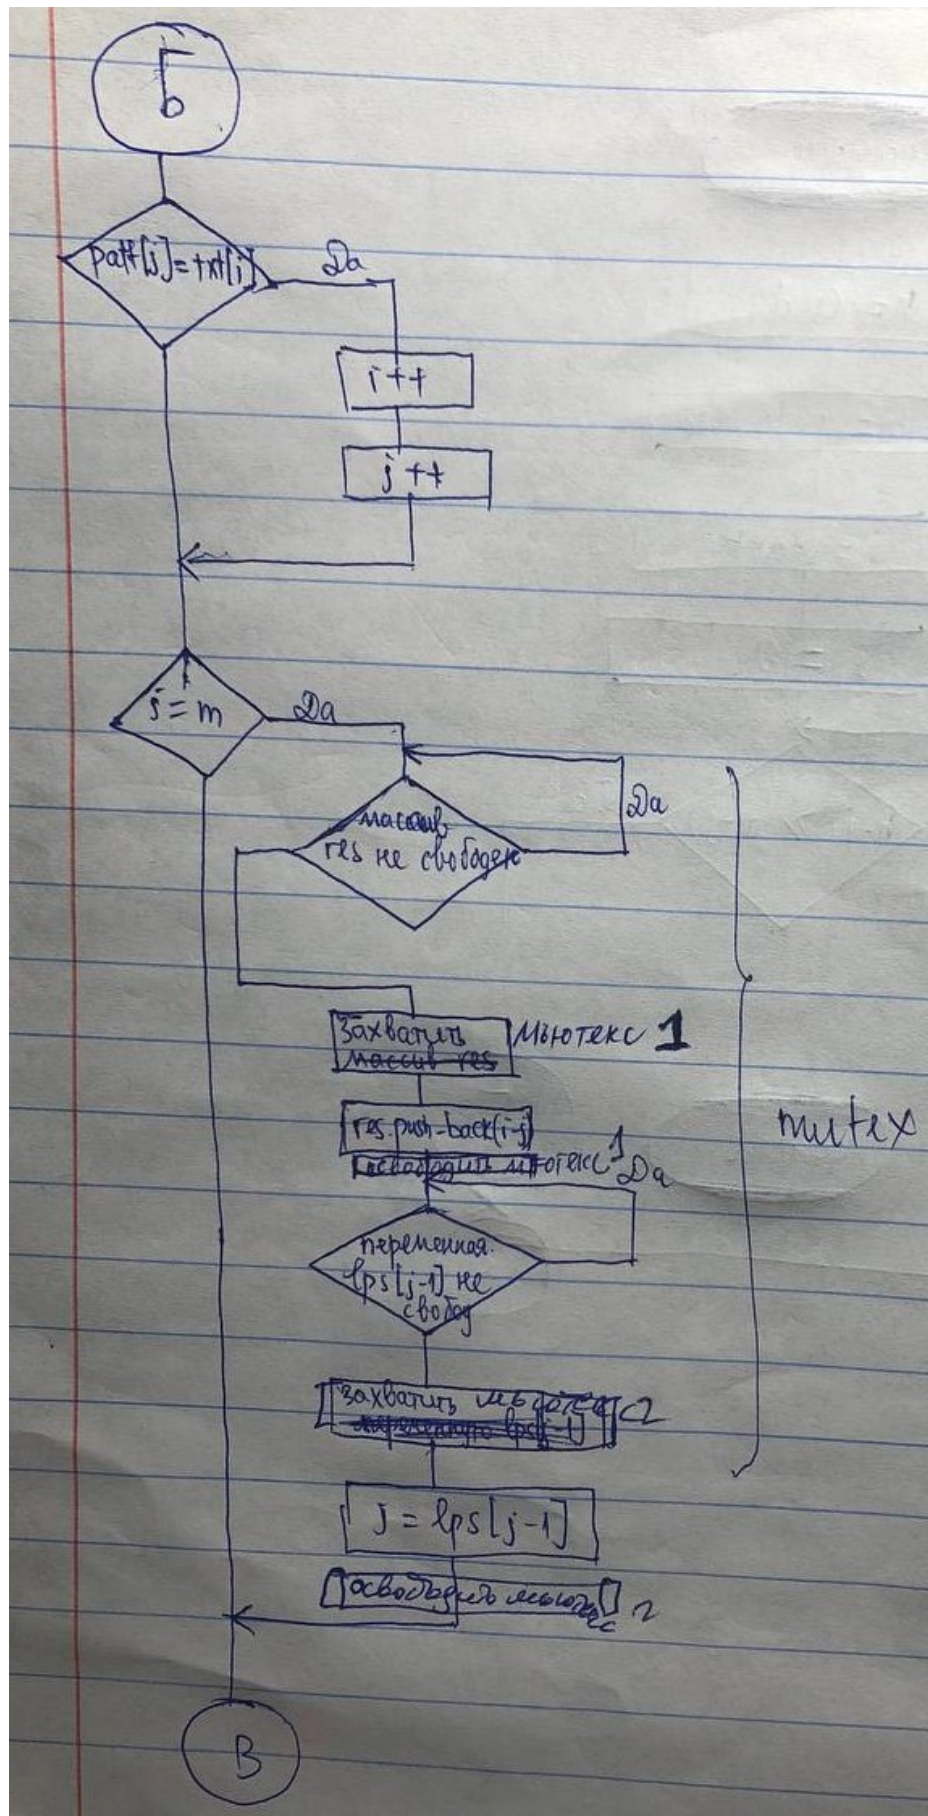 Б
patt[j]=txt[i]
Да
i++
j++
j=m
Да
массив
res не свободен
Да
Захватить мьютекс 1
массив res
res.push-back(i-j)
освободить мьютекс 1
Да
переменная
lps[j-1] не
свобод
захватить мьютекс 2
переменную lps[j-1]
j = lps[j-1]
освободить мьютекс 2
mutex
В